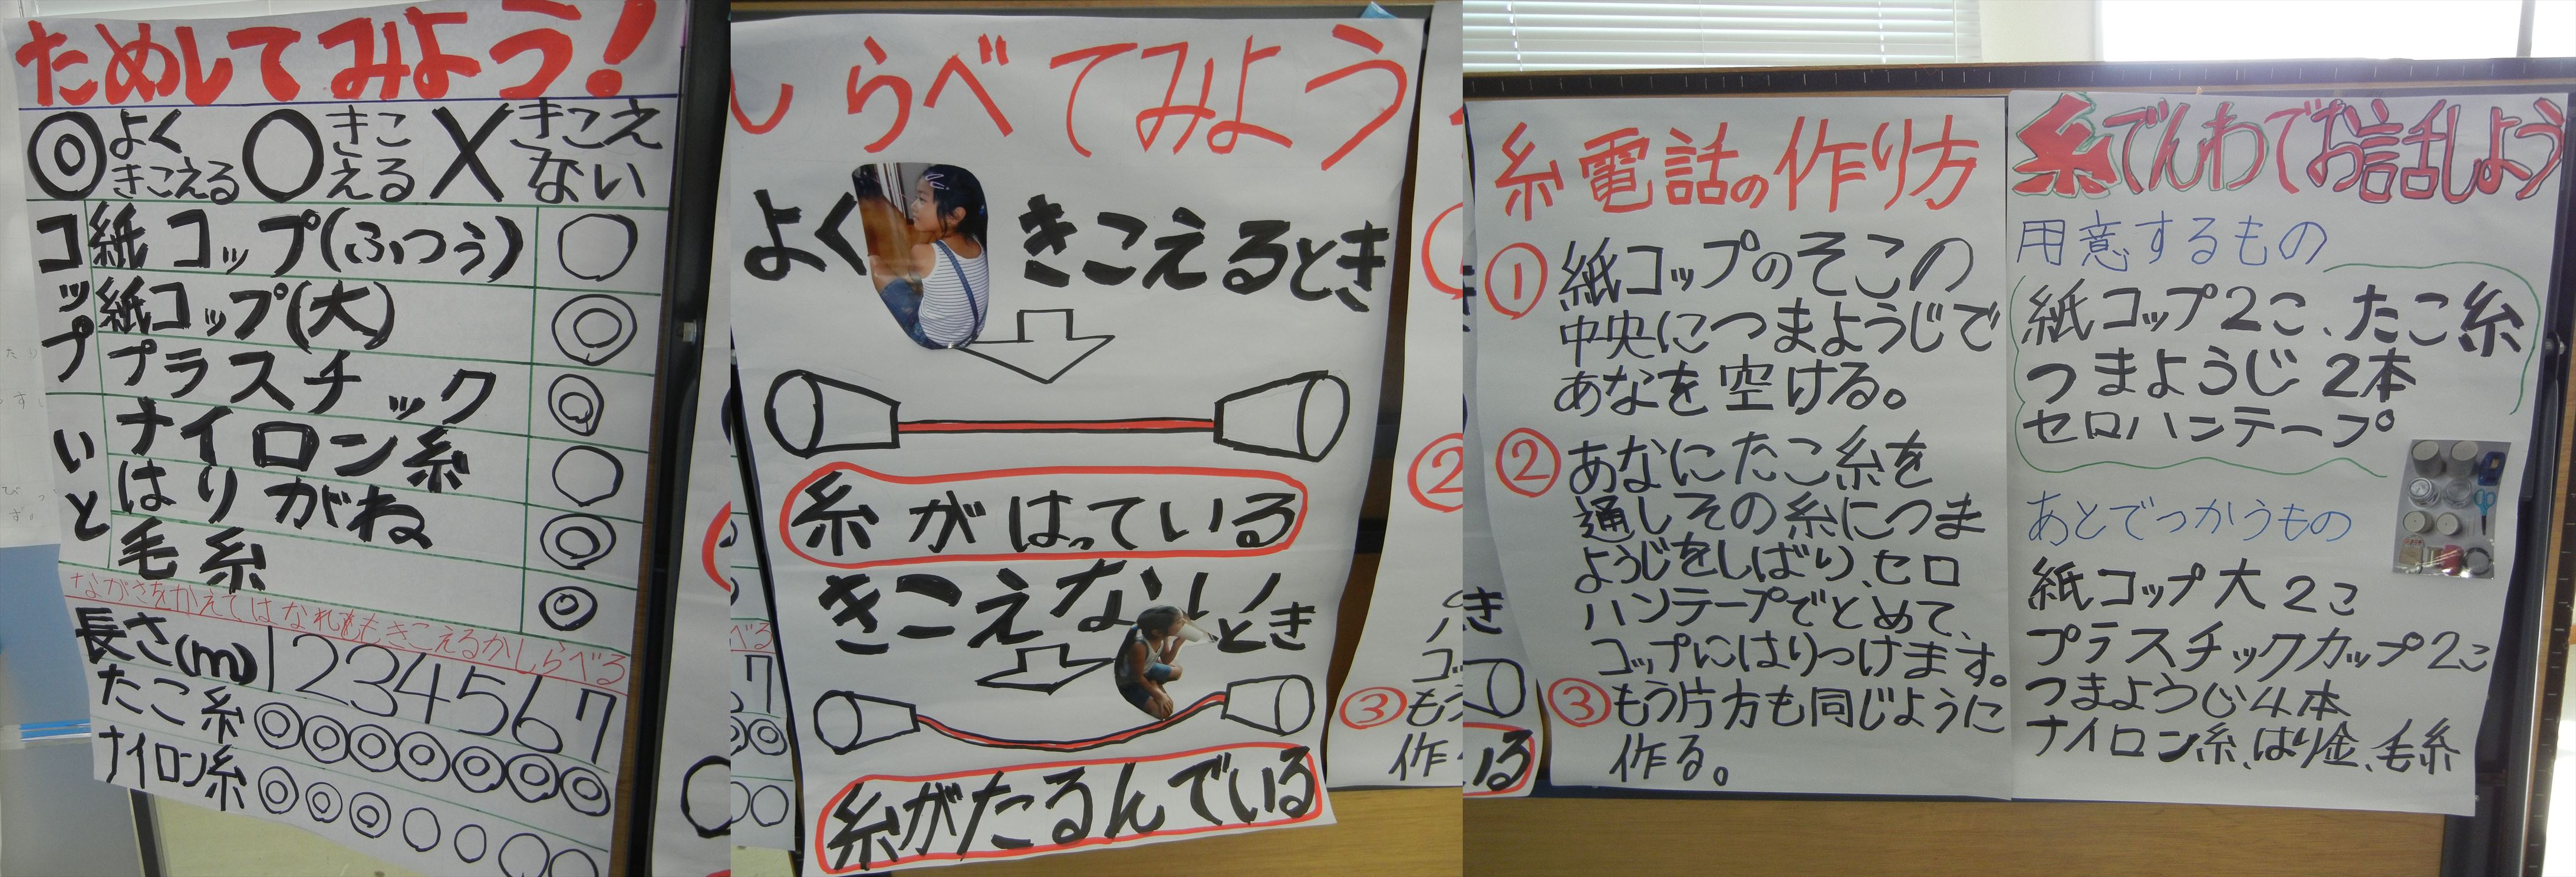 ためしてみよう!
◎よくきこえる ○きこえる ×きこえない
コップ
紙コップ(ふつう) ○
紙コップ(大) ◎
プラスチック ◎
いと
ナイロン糸 ○
はりがね ◎
毛糸 ◎
ながさをかえてはなれてもきこえるかしらべる
長さ(m) 1 2 3 4 5 6 7
たこ糸 ◎◎◎◎◎◎◎
ナイロン糸 ◎◎◎○○○○
しらべてみよう
よくきこえるとき
糸がはっている
きこえないとき
糸がたるんでいる
②
③もう
作る
糸電話の作り方
①紙コップのそこの
中央につまようじで
あなを空ける。
②あなにたこ糸を
通しその糸につま
ようじをしばり、セロ
ハンテープでとめて、
コップにはりつけます。
③もう片方も同じように
作る。
糸でんわでお話しよう
用意するもの
紙コップ2こ、たこ糸
つまようじ 2本
セロハンテープ
あとでつかうもの
紙コップ大2こ
プラスチックカップ2こ
つまようじ4本
ナイロン糸、はり金、毛糸